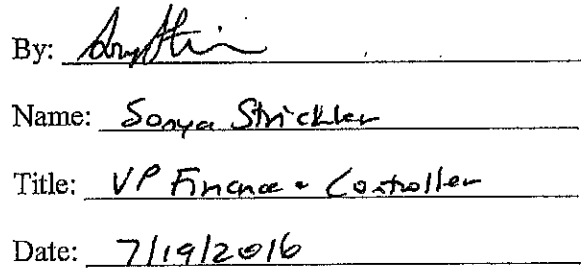 By:
Name: Sonya Strickler
Title: VP Finance + Controller
Date: 7/19/2016